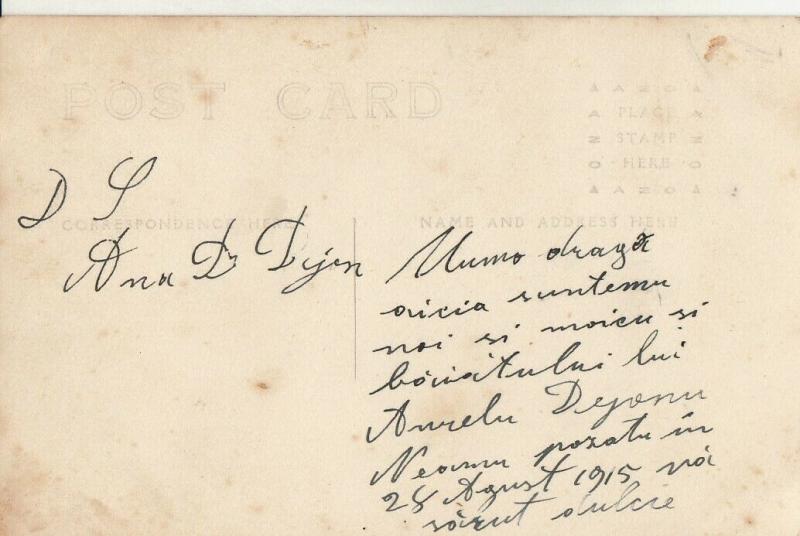 POST CARD
AZOA
PLACE
STAMP
HERE
AZOA
D S
CORRESPONDENCE HERE
NAME AND ADDRESS HERE
Ana D Dejen
Mumo dragă
aicia suntemu
noi si moicu si
băiatului lui
Aurelu Dejanu
Neamu pozatu in
28 Agust 1915 vă
sărut dulcie